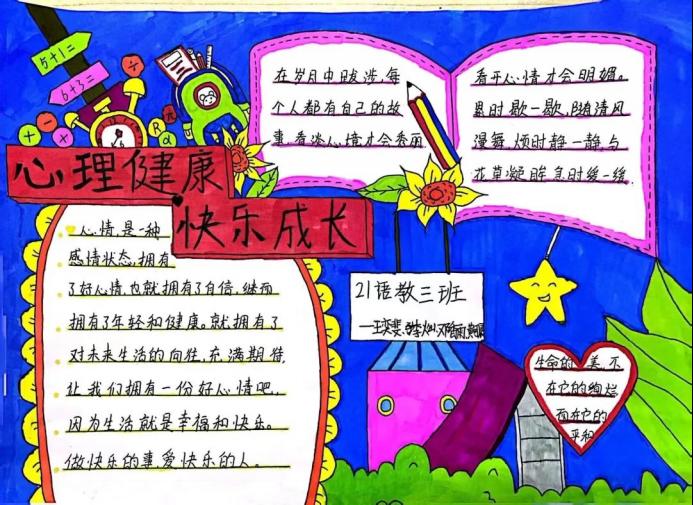 5+1=
6+3=
心理健康
快乐成长
心情,是一种
感情状态,拥有
了好心情,也就拥有了自信,继而
拥有了年轻和健康。就拥有了
对未来生活的向往,充满期待,
让我们拥有一份好心情吧,
因为生活就是幸福和快乐。
做快乐的事,爱快乐的人。
在岁月中跋涉,每
个人都有自己的故
事,看淡心境才会秀丽
看开心情才会明媚。
累时歇一歇,随清风
漫舞,烦时静一静,与
花草凝眸,急时缓一缓,
21语教三班
生命的美,不
在它的绚烂
而在它的
平和